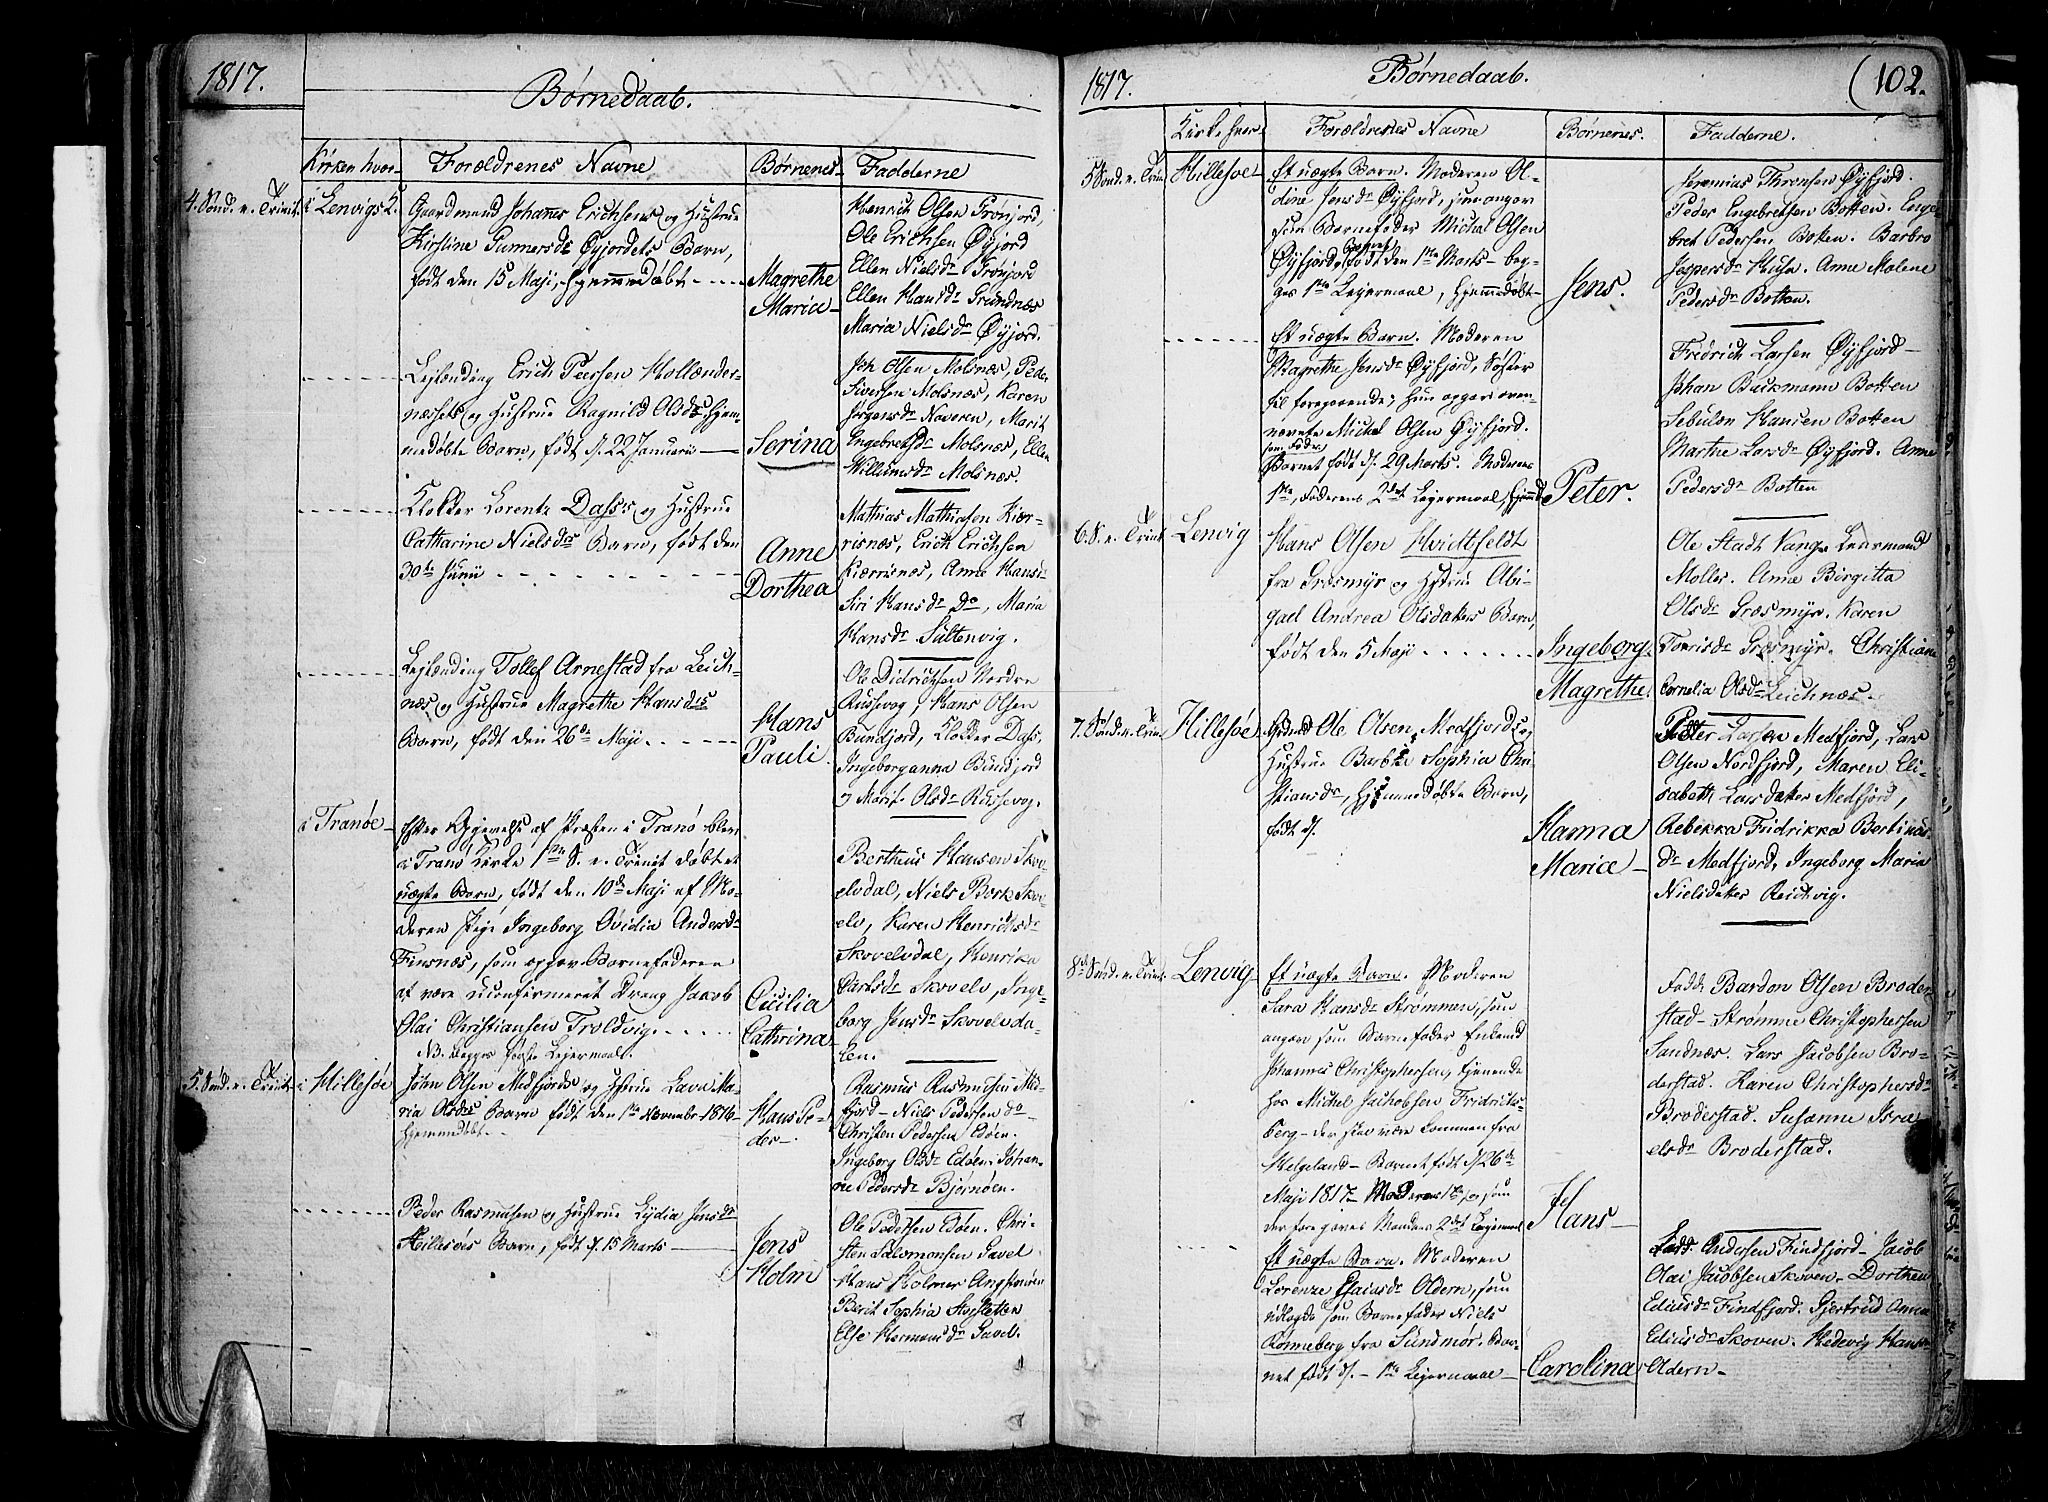 1817.
Børnedaab.
Kirken hvor-
Forældrenes Navne
Børnenes-
Fadderne
4. Sønd. e. Trinit.
i Lenvigs K.
Gaardmand Johannes Erichsens og Hustrue
Kirstine Gunnersdr Øyjordets Barn,
født den 15 Maji, hjemmedøbt
Magrethe
Maria
Henrich Olsen Grønjord,
Ole Erichsen Øyjord
Ellen Nielsdr Grønjord
Ellen Hansdr Grundnæs
Maria Nielsdr Øyjord.
Lejlænding Erich Peersen Hollænder-
næsets og Hustrue Ragnild Olsdrs hjem-
medøbte Barn, født d. 22 Januarii
Serina
Joh Olsen Molsnæs, Peder
Siversen Molsnæs, Karen
Jørgensdr Naveren, Marit
Engebretsdr Molsnæs, Ellen
Willumsdr Molsnæs.
Klokker Lorentz Dass's og Hustrue
Catharine Nielsdrs Barn, født den
30te Junii
Anne
Dorthea
Mathias Mathiesen Kiær-
risnæs, Erich Erichsen
Kiærrisnæs, Anne Hansdr
Siri Hansdr Do, Maria
Hansdr Sultenvig.
Lejlænding Tollef Arnestad fra Leich-
næs og Hustrue Magrethe Hansdrs
Barn, født den 26de Maji
Hans
Pauli
Ole Didrichsen Nordre
Russevog, Hans Olsen
Bundjord, Klokker Dass,
Ingeborganna Bundjord
og Marit Olsdr Russevog.
i Tranøe
Efter Opgivelse af Præsten i Tranø blev
i Tranø Kirke 1ste S. e. Trinit døbt et
uægte Barn, født den 10de Maji af Mo-
deren Pige Ingeborg Ovidia Andersdr
Finsnæs, som opgav Barnefaderen
at være uconfirmeret Dreng Jacob
Olai Christiansen Troldvig.
NB. begges første Lejermaal.
Cicilia
Cathrina
Bertheus Hansen Skov-
elvdal, Niels Berk Skov-
elv, Karen Henrichsdr
Skovelvdal, Henrika
Carlsdr Skovelv, Inge-
borg Jensdr Skovelvda-
len.
5. Sønd. e. Trinit.
i Hillesøe
John Olsen Medfjords og Hustrue Lava Ma-
ria Olsdrs Barn født den 1ste November 1816
hjemmedøbt
Hans Pe-
der
Rasmus Rasmusen Med-
fjord - Niels Pedersen do
Christen Pedersen Edøen.
Ingeborg Olsdr Edøen. Johan-
ne Pedersdr Bjørnøen.
Peder Rasmusen og Hustrue Lydia Jensdr
Hillesøes Barn, født d. 15 Marts
Jens
Holm
Ole Pedersen Edøen. Chri-
sten Salomonsen Gavel
Hans Holmer
Berit Sophia
Else Hermansdr Gavel.
1817.
Børnedaab.
(102.
Kirke hvor-
Forældrenes Navne
Børnenes.
Fadderne.
5 Sønd. e. Trinit
Hillesøe
Et uægte Barn. Moderen O-
dine Jensdr Øyfjord, som angav
som Barnefader Michal Olsen
Øyfjord, Barnet født den 1ste Marts - beg-
ges 1ste Lejermaal, hjemmedøbt
Jens.
Jeremias Thronsen Øyfjord.
Peder Engebretsen Botten. Enge-
bret Pedersen Botten. Barbro
Jespersdr Husø. Anne Molene
Pedersdr Botten.
Et uægte Barn. Moderen
Magrethe Jensdr Øyfjord, Søster
til foregaaende; hun opgav oven-
nævnte Michel Olsen Øyfjord.
som Fader
Barnet født d. 29 Marts. Moderens
1ste, Faderens 2det Lejermaal, hjemmd
Peter.
Fridrich Larsen Øyfjord
Johan Buckmann Botten
Sebulon Hansen Botten
Marthe Larsdr Øyfjord. Anne
Pedersdr Botten
6. S. e. Trinit
Lenvig
Hans Olsen Hvidtfeldt
fra Græsmyr og Hustrue Abi-
gael Andrea Olsdatters Barn,
født den 5 Maji
Ingeborg
Magrethe
Ole Stadt Vang. Lensmand
Moller. Anne Birgitta
Olsdr Græsmyr. Karen
Græsmyr. Christiane
Cornelia Olsdr Leichnæs.
7. Sønd. e. Trinit
Hillesøe
Gdmd Ole Olsen Medfjords og
Hustrue Sophia Chri-
stiansdr, hjemmedøbte Barn,
født d.
Hanna
Maria
Peder Larsen Medfjord, Lars
Olsen Nordfjord, Maren Eli-
sabeth Larsdatter Medfjord,
Rebekka Fridrikka Bertines-
dr Medfjord, Ingeborg Maria
Nielsdatter Reichvig.
8de Sønd. e. Trinit.
Lenvig
Et uægte Barn. Moderen
Sara Hansdr Strømmen, som
angav som Barnefader Enkemd
Johannes Christophersen, tjenende
hos Michel Jachobsen Fridrichs-
berg - der skal være kommen fra
Helgeland - Barnet født d. 26de
Maji 1817. Moderens 1ste, som
der foregaves Mandens 2det Lejermaal
Hans
Fadd. Bardon Olsen Broder-
stad - Strømme Christophersen
Sandnæs. Lars Jacobsen Bro-
derstad. Karen Christophersdr
Broderstad. Susanne Isra-
elsdr Broderstad.
Et uægte Barn. Moderen
Lorenze Esaiasdr Oldern, som
udlagde som Barnefader Niels
Rønneberg fra Sundmør. Bar-
net født d. - 1ste Lejermaal
Carolina
Fadd. Andersen Findfjord. Jacob
Olai Jacobsen Skoven. Dorthea
Eliusdr Findfjord. Gjertrud Anna
Eliusdr Skoven. Hedevig Hans-
Oldern